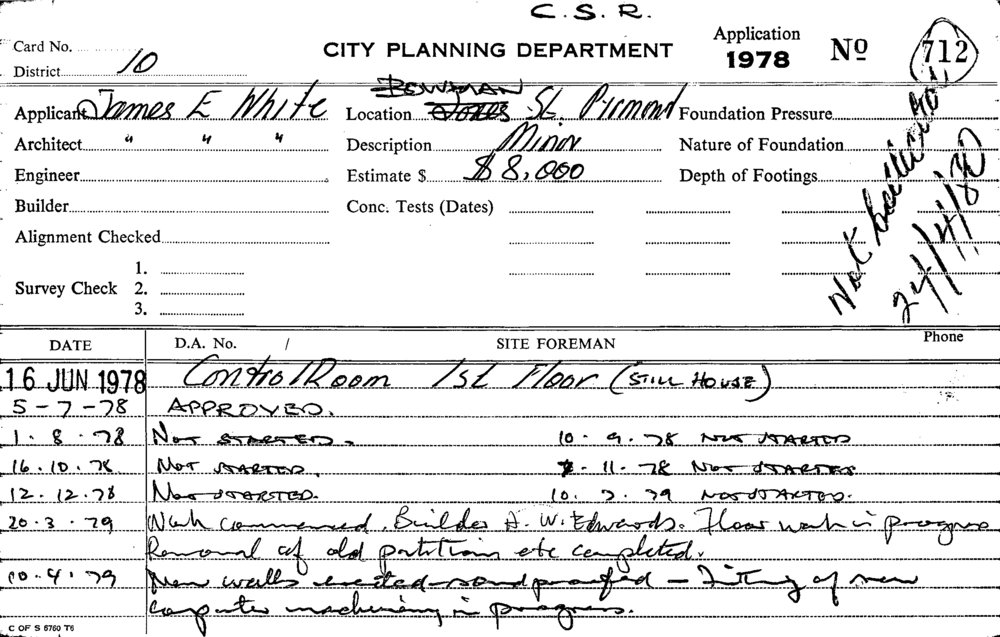 C. S. R.
Card No.
CITY PLANNING DEPARTMENT
Application 1978 No 712
District 10
Applicant James E White
Location BOWMAN Jones St. Pirmond
Foundation Pressure
Architect " " "
Description Minor
Nature of Foundation
Engineer
Estimate $ $ 8,000
Depth of Footings
Builder
Conc. Tests (Dates)
Alignment Checked
Survey Check 1.
2.
3.
Not 24/4/80
DATE D.A. No. / SITE FOREMAN Phone
16 JUN 1978 Control Room 1st Floor (STILL HOUSE)
5-7-78 APPROVED.
1.8.78 NOT STARTED. 10.9.78 NOT STARTED
16.10.78 NOT STARTED. 11.78 NOT STARTED
12.12.78 NOT STARTED. 10.2.79 NOT STARTED.
20.3.79 Work commenced. Builder A. W. Edwards. Floor work in progress
Removal of old partitions etc completed.
10.4.79 New walls erected & sound proofed – Fitting of new
computer machinery in progress.
C OF S 5760 T6